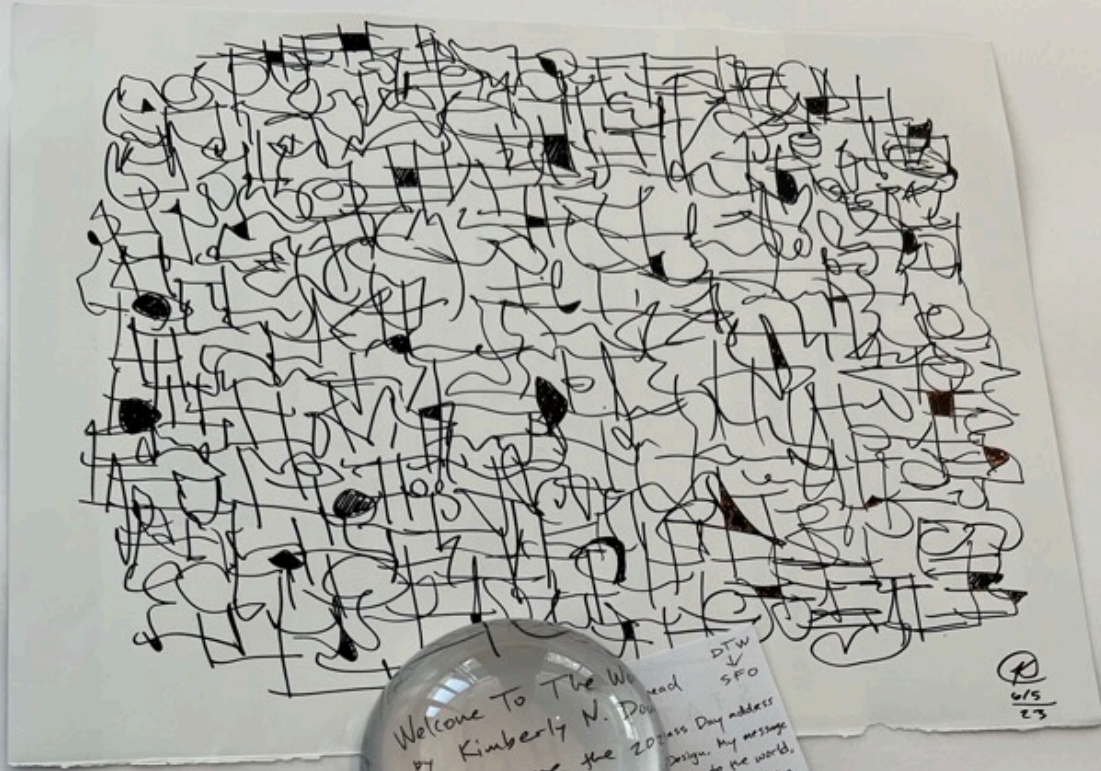 DTW
↓
SFO
Welcome To The
By Kimberly N.
the 20 ass Day address
Design. My message
to the world,
6/5
23